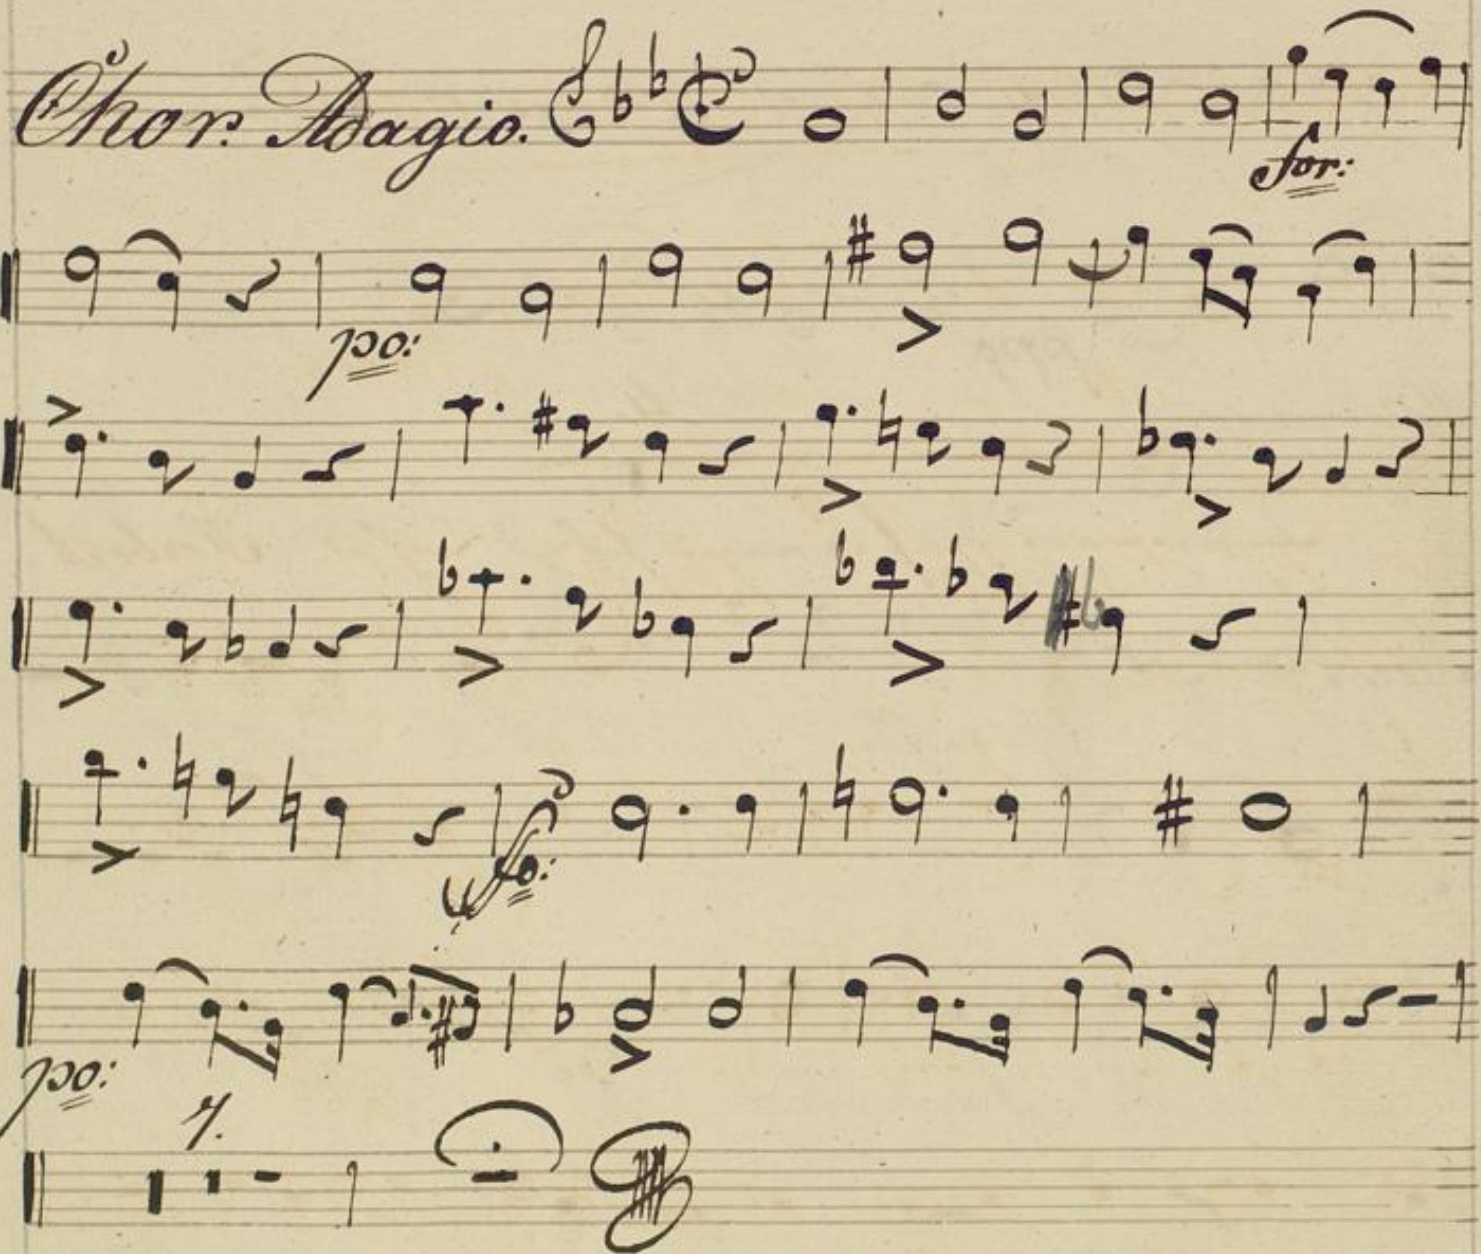 Chor. Adagio.
for:
po:
fo:
po:
7.